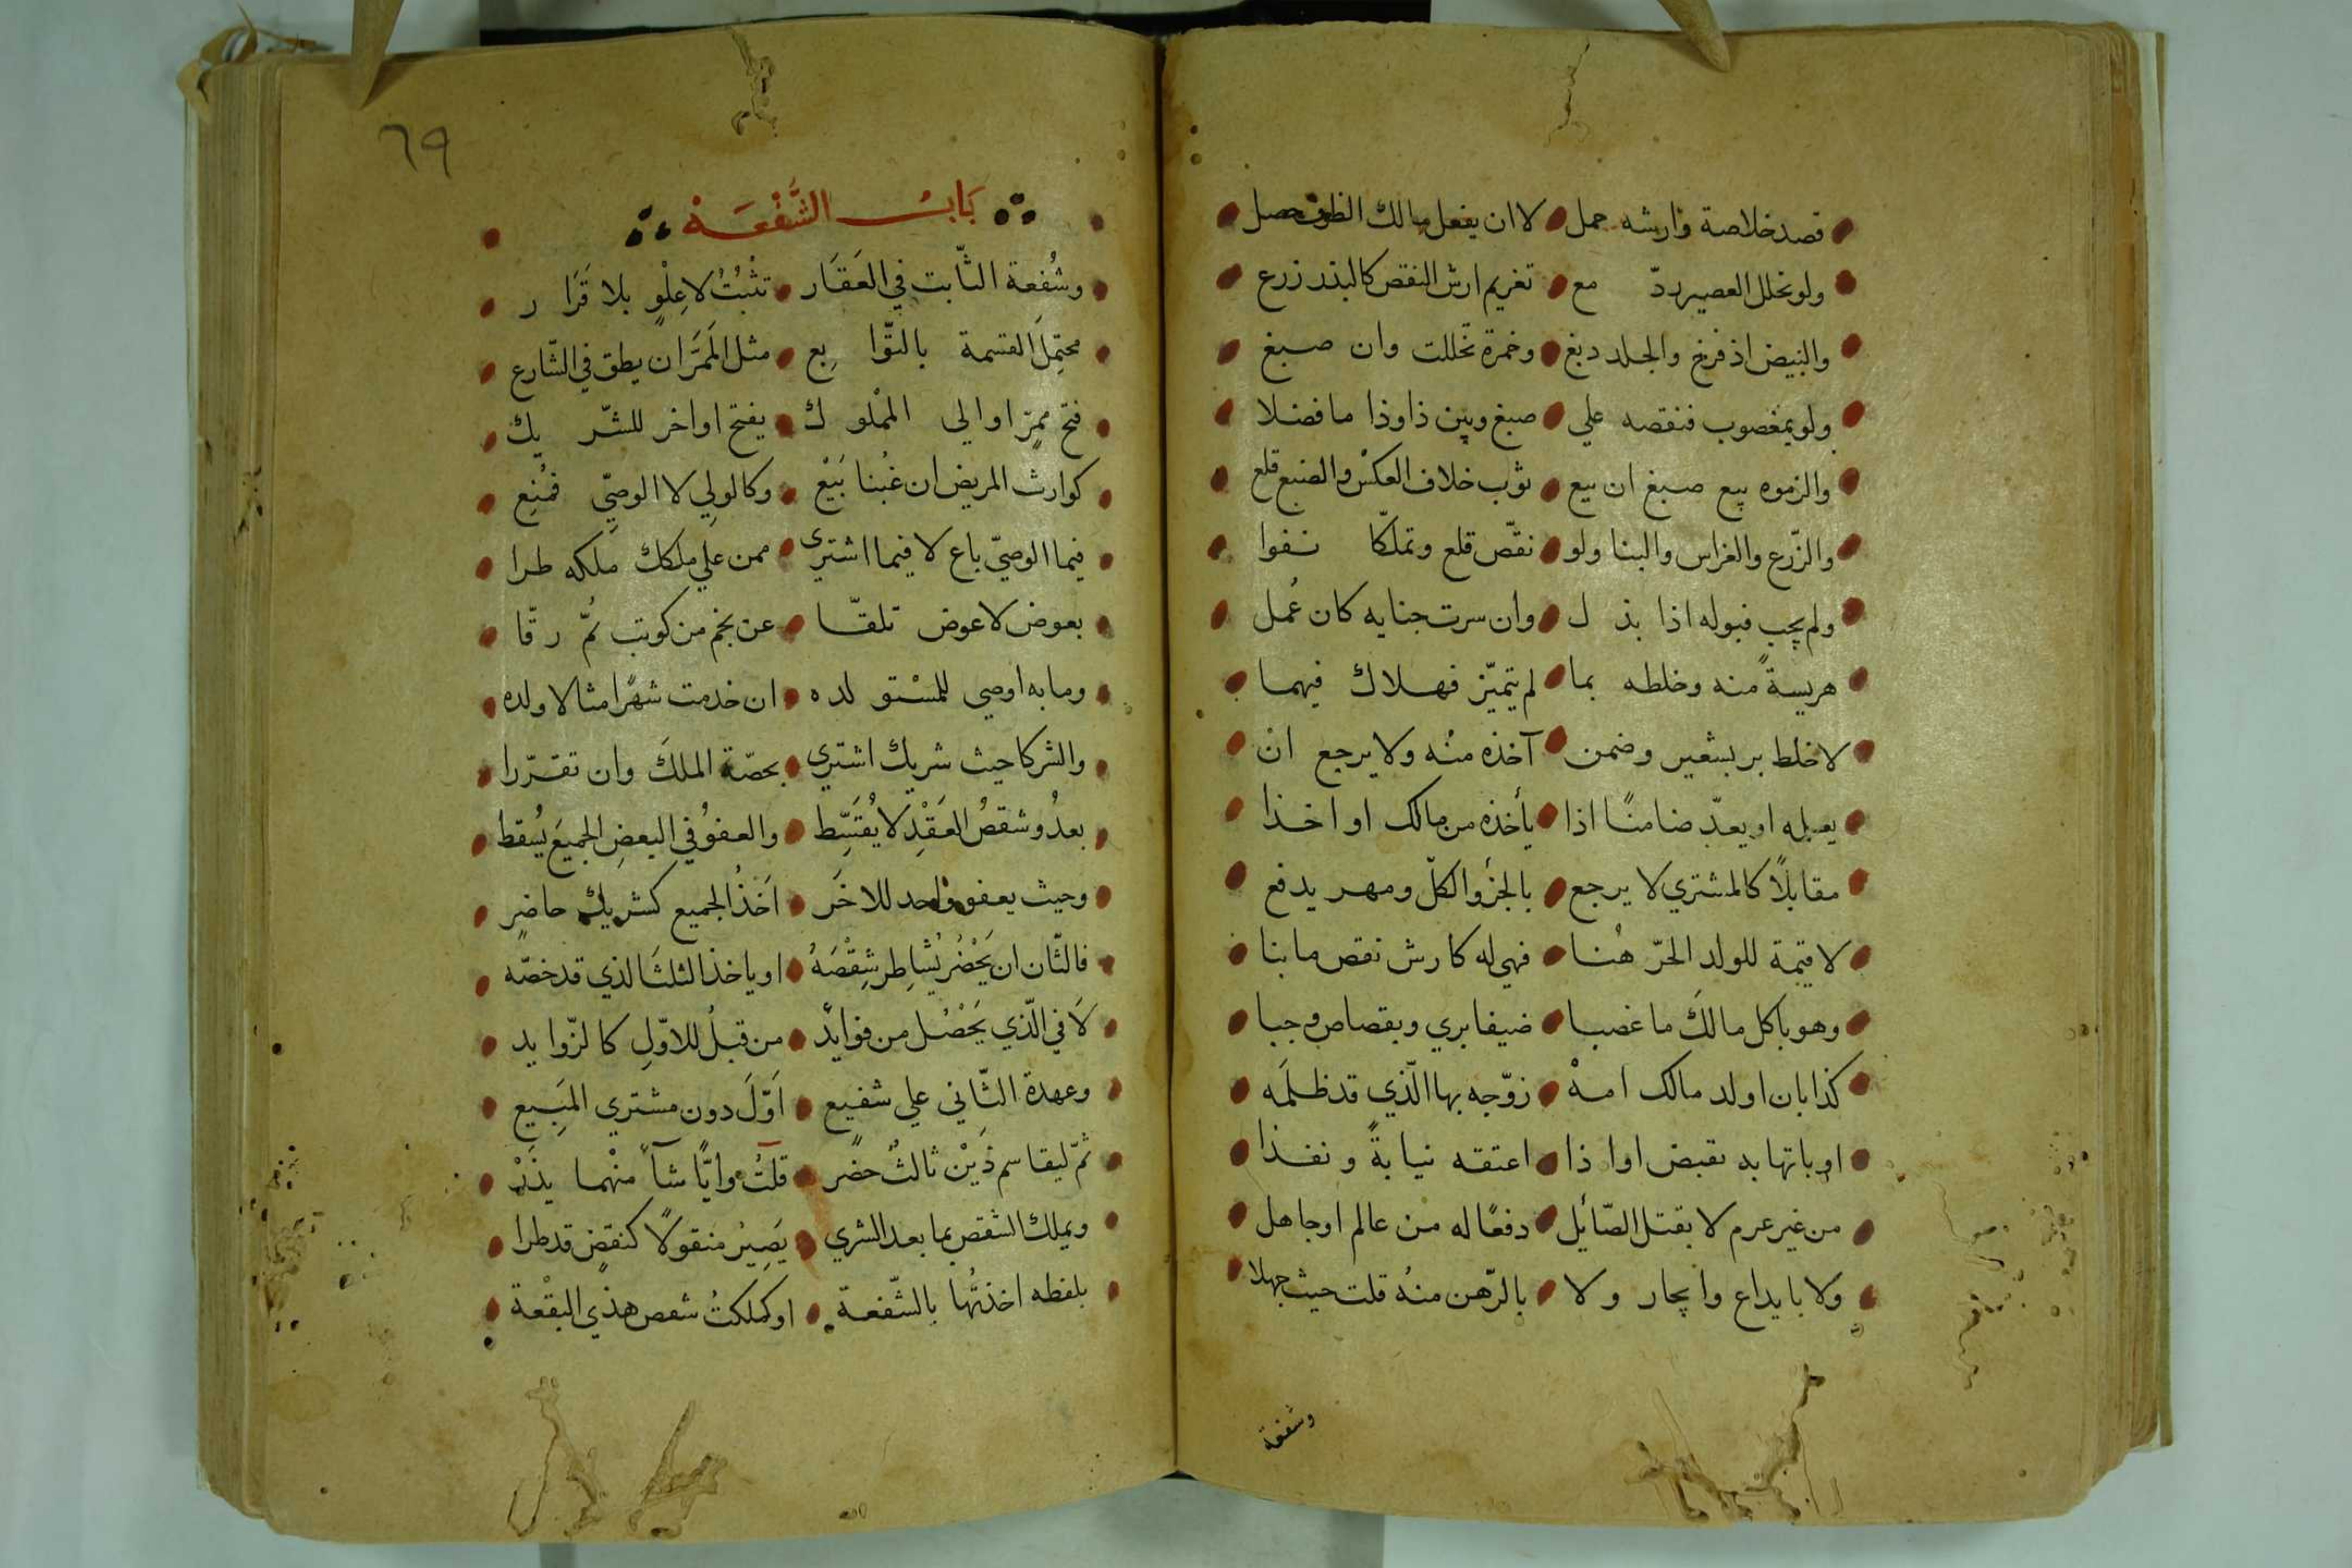 قصد خلاصة وارشه حمل لا ان يفعل مالك الظرف حصل
ولو تخلل العصير ردّ مع تغريم ارش النقص كالبذر زرع
والبيض اذ فرخ والجلد دبغ وخمرة تخللت وان صبغ
ولو بمغصوب فنقصه علي صبغ وبين ذا وذا ما فضلا
والزموه بيع صبغ ان بيع ثوب خلاف العكس والصبغ قلع
والزّرع والغراس والبنا ولو نقّص قلع وتملّكا نفوا
ولم يجب قبوله اذا بذ ل وان سرت جنايه كان عُمل
هريسةً منه وخلطه بما لم يتميّز فهلاك فيهما
لا خلط بر بشعير وضمن آخذه منه ولا يرجع ان
يعبله او يعدّ ضامنًا اذا يأخذه من مالك او اخذا
مقابلاً كالمشتري لا يرجع بالجزْ والكلّ ومهر يدفع
لا قيمة للولد الحرّ هُنا فهي له كارش نقص ما بنا
وهو باكل مالك ما غصبا ضيفا بري وبقصاص وجبا
كذا بان اولد مالك امهْ زوّجه بها الّذي قد ظلمَه
او باتهابه تقبض اوا ذا اعتقه نيابةً ونفذا
من غير عرم لا بقتل الصّائل دفعًا له من عالم او جاهل
ولا بايداع وايجار ولا بالرّهن منهُ قلت حيث جهلا
وشفعة
٦٩
بَابُ الشُّفْعَهْ
وشُفعة الثّابت في العَقَار تثْبُتُ لا عِلْوٍ بلا قَرَا ر
محتمِلَ القسمة بالتّوا بِع مثل المَمَرَّ ان يطق في الشّارع
فتح ممرّ او الي المُلو ك يفتح او اخر للشّر يك
كوارث المريض ان غُبنا بَيْع وكالولي لا الوصِيّ فمُنِع
فيما الوصيّ باع لا فيما اشتري ممن علي ملكك مِلكه طرا
بعوض لا عوض تلقّا عن نجم من كوتب ثمّ رقّا
وما به اوصي للمسْتو لده ان خدمت شهرًا مثالا ولده
والشركا حيث شريك اشتري بحصّة الملك وان تقرّرا
بعدُ وشقصُ العَقْدِ لا يُقَسِّط والعفوُ في البعضِ الجميعَ يُسقط
وحيث يعفو واحد للاخَر اَخذُ الجميع كشريك حاضر
فالثّان ان يَحْضُر يُشاطِر شِقْصَهُ او ياخذ الثلثَ الذي قد خصّه
لاَ في الّذي يَحْصُل من فوايدْ من قبلُ للاوّلِ كالزّوايد
وعهدة الثّاني علي شفيع اَوّلَ دون مشتري المَبِيع
ثمّ ليقاسم ذَيْن ثالثٌ حضر قلتُ وايًّا شآ منْهما يذَرْ
ويملك الشقص بما بعد الشري يَصِيرُ منقولاً كنقضٍ قد طرا
بلفظه اخذتُها بالشّفعة او كملكتُ شقص هذي البقْعة